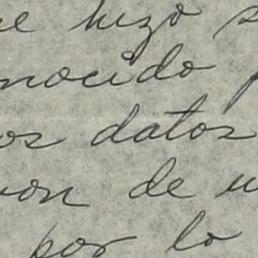 hizo
nocido
os datos
on de u
por lo